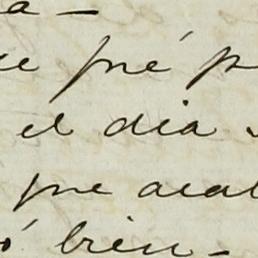 a —
fué
el dia
que acab
ó bien —